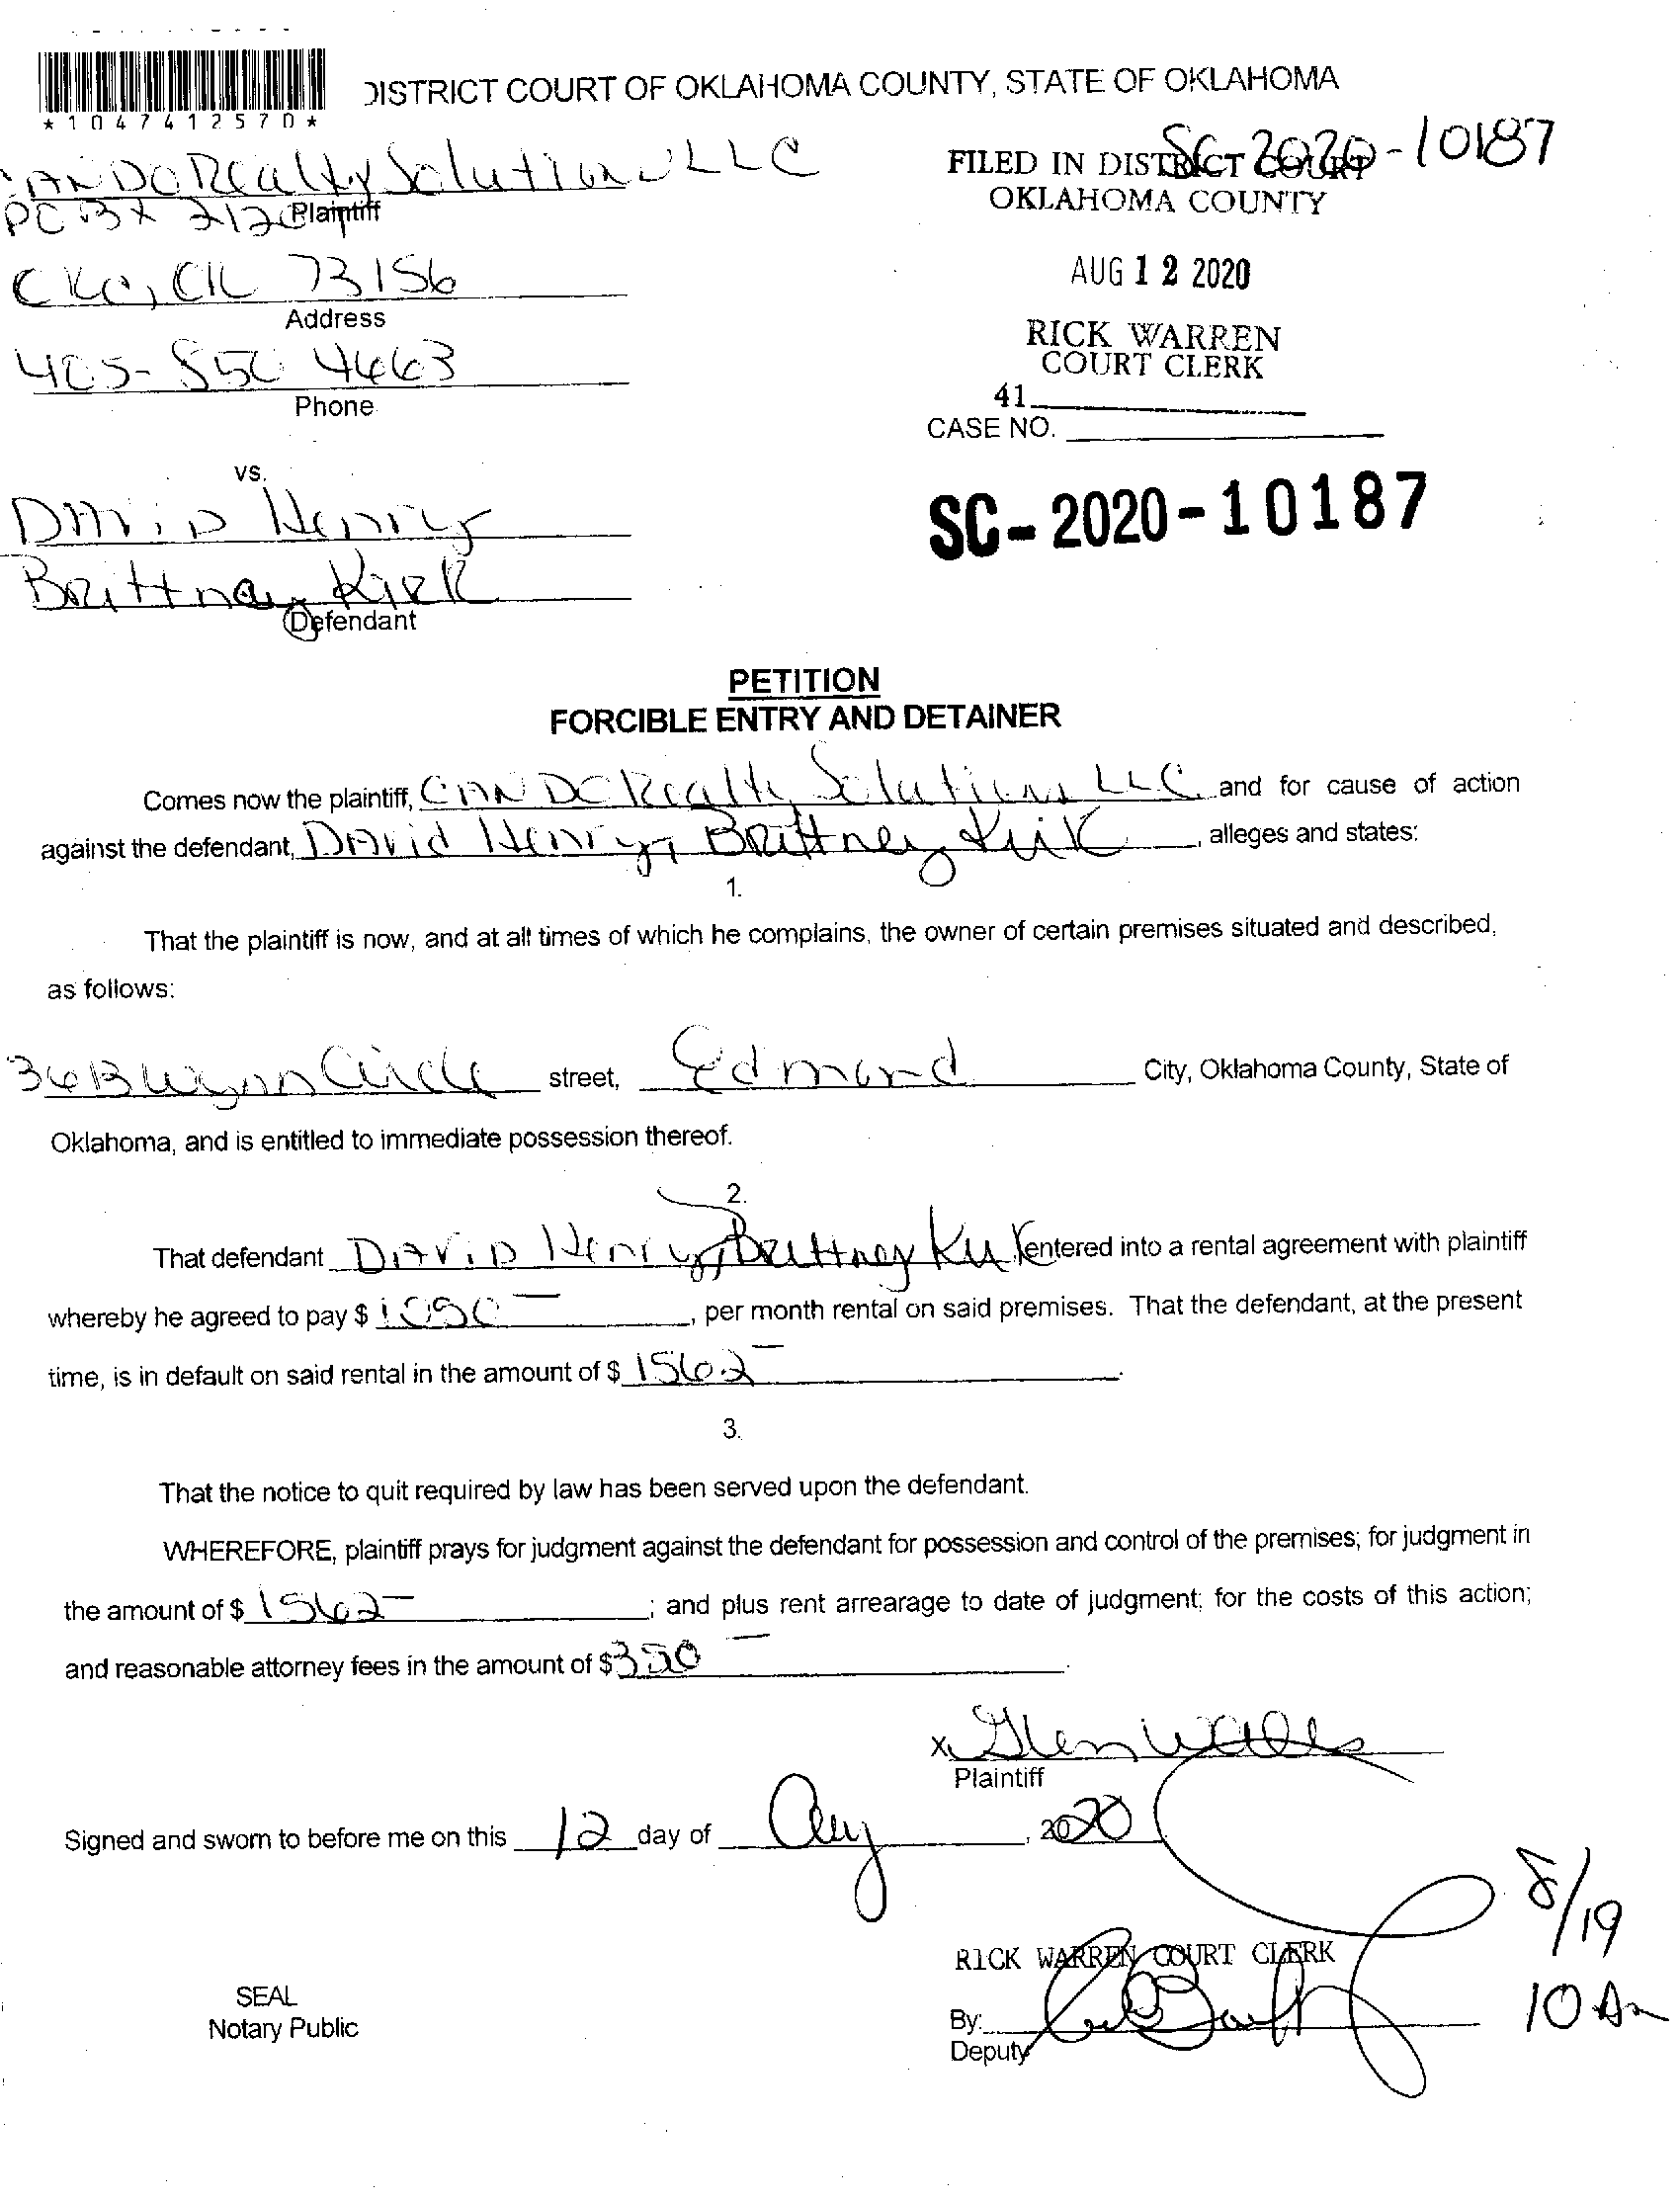 *1047412570*
DISTRICT COURT OF OKLAHOMA COUNTY, STATE OF OKLAHOMA
SC-2020-10187
CAN DO Realty Solutions LLC
FILED IN DISTRICT COURT
OKLAHOMA COUNTY
Plaintiff
OKC, OK 73156
AUG 12 2020
Address
RICK WARREN
COURT CLERK
405-850 4663
Phone
41
CASE NO.
vs.
DAVID Henry
SC-2020-10187
Brittney Kirk
Defendant
PETITION
FORCIBLE ENTRY AND DETAINER
Comes now the plaintiff, CAN DO Realty Solutions LLC and for cause of action
against the defendant, DAVid Henry, Brittney Kirk, alleges and states:
1.
That the plaintiff is now, and at all times of which he complains, the owner of certain premises situated and described,
as follows:
Circle street, Edmond City, Oklahoma County, State of
Oklahoma, and is entitled to immediate possession thereof.
2.
That defendant DAViD Henry, Brittney Kirk entered into a rental agreement with plaintiff
whereby he agreed to pay $ , per month rental on said premises. That the defendant, at the present
time, is in default on said rental in the amount of $ 1562 .
3.
That the notice to quit required by law has been served upon the defendant.
WHEREFORE, plaintiff prays for judgment against the defendant for possession and control of the premises; for judgment in
the amount of $ 1562 ; and plus rent arrearage to date of judgment; for the costs of this action;
and reasonable attorney fees in the amount of $ .
X Glen
Plaintiff
Signed and sworn to before me on this 12 day of Aug, 2020
8/19
10 Am
RICK WARREN COURT CLERK
SEAL
Notary Public
By:
Deputy